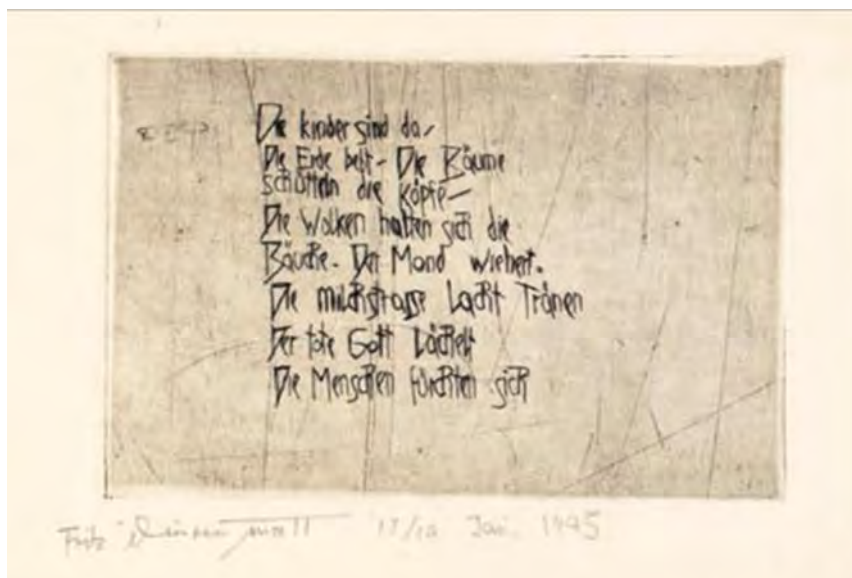 Die Kinder sind da –
Die Erde bebt – Die Bäume
schütteln die Köpfe –
Die Wolken halten sich die
Bäuche. Der Mond wiehert.
Die Milchstrasse lacht Tränen
Der tote Gott lächelt
Die Menschen fürchten sich
Fritz 17/18 Jan. 1945